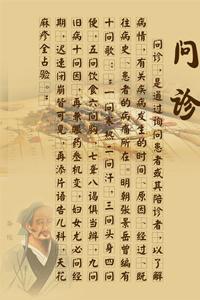 问诊
问诊，是通过询问患者或其陪诊者，以了解
病情，有关疾病发生的时间、原因、经过、既
往病史、患者的病痛所在。明朝张景岳曾编有
十问歌：“一问寒热二问汗，三问头身四问
便，五问饮食六问胸，七聋八渴俱当辨，九问
旧病十问因，再兼服药参机变。妇女尤必问经
期，迟速闭崩皆可见，再添片语告儿科，天花
麻疹全占验。”